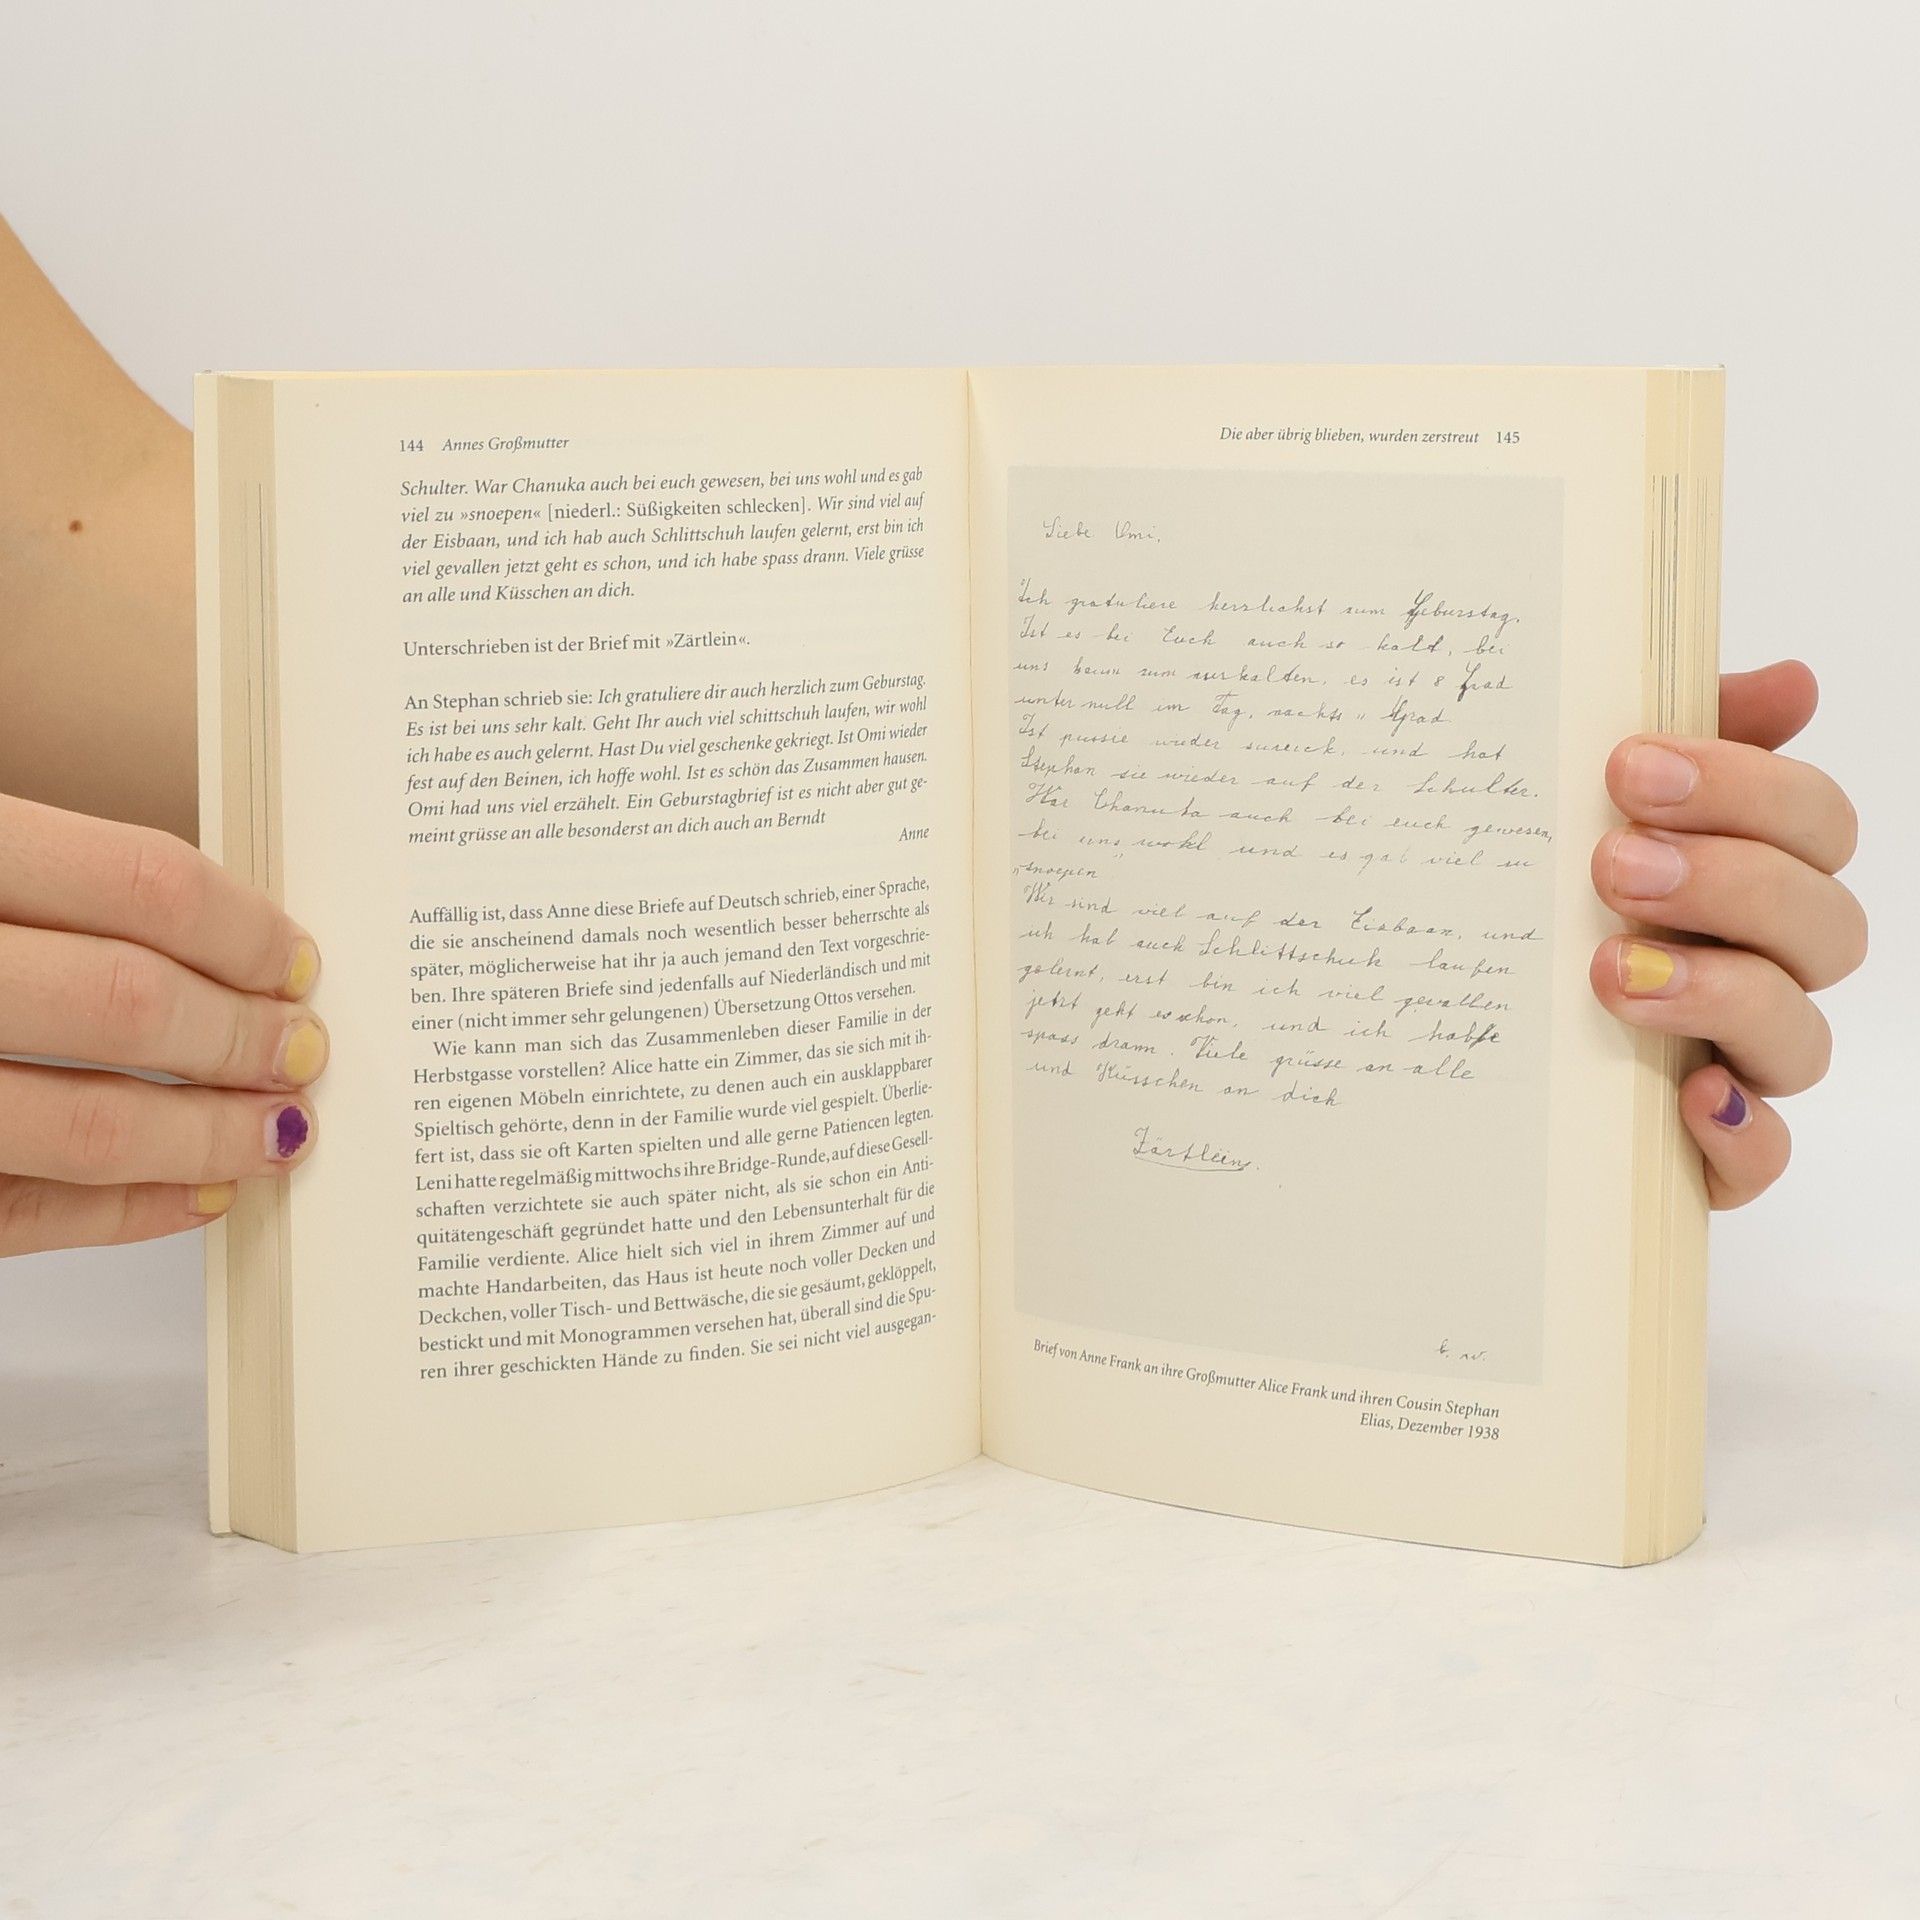 144 Annes Großmutter
Schulter. War Chanuka auch bei euch gewesen, bei uns wohl und es gab
viel zu »snoepen« [niederl.: Süßigkeiten schlecken]. Wir sind viel auf
der Eisbaan, und ich hab auch Schlittschuh laufen gelernt, erst bin ich
viel gevallen jetzt geht es schon, und ich habe spass drann. Viele grüsse
an alle und Küsschen an dich.
Unterschrieben ist der Brief mit »Zärtlein«.
An Stephan schrieb sie: Ich gratuliere dir auch herzlich zum Geburstag.
Es ist bei uns sehr kalt. Geht Ihr auch viel schittschuh laufen, wir wohl
ich habe es auch gelernt. Hast Du viel geschenke gekriegt. Ist Omi wieder
fest auf den Beinen, ich hoffe wohl. Ist es schön das Zusammen hausen.
Omi had uns viel erzählt. Ein Geburstagbrief ist es nicht aber gut ge-
meint grüsse an alle besonderst an dich auch an Berndt
Anne
Auffällig ist, dass Anne diese Briefe auf Deutsch schrieb, einer Sprache,
die sie anscheinend damals noch wesentlich besser beherrschte als
später, möglicherweise hat ihr ja auch jemand den Text vorgeschrie-
ben. Ihre späteren Briefe sind jedenfalls auf Niederländisch und mit
einer (nicht immer sehr gelungenen) Übersetzung Ottos versehen.
Wie kann man sich das Zusammenleben dieser Familie in der
Herbstgasse vorstellen? Alice hatte ein Zimmer, das sie sich mit ih-
ren eigenen Möbeln einrichtete, zu denen auch ein ausklappbarer
Spieltisch gehörte, denn in der Familie wurde viel gespielt. Überlie-
fert ist, dass sie oft Karten spielten und alle gerne Patiencen legten.
Leni hatte regelmäßig mittwochs ihre Bridge-Runde, auf diese Gesell-
schaften verzichtete sie auch später nicht, als sie schon ein Anti-
quitätengeschäft gegründet hatte und den Lebensunterhalt für die
Familie verdiente. Alice hielt sich viel in ihrem Zimmer auf und
machte Handarbeiten, das Haus ist heute noch voller Decken und
Deckchen, voller Tisch- und Bettwäsche, die sie gesäumt, geklöppelt,
bestickt und mit Monogrammen versehen hat, überall sind die Spu-
ren ihrer geschickten Hände zu finden. Sie sei nicht viel ausgegan-
Die aber übrig blieben, wurden zerstreut 145
Liebe Omi,
Ich gratuliere herzlichst zum Geburstag.
Ist es bei Euch auch so kalt, bei
uns zum es ist 8 Grad
unter null im Tag, nachts 11 Grad.
Ist wieder und hat
Stephan sie wieder auf der Schulter.
War Chanuka auch bei euch gewesen,
bei uns wohl und es gab viel zu
„snoepen"
Wir sind viel auf der Eisbaan, und
ich hab auch Schlittschuh laufen
gelernt, erst bin ich viel gevallen
jetzt geht es schon, und ich habe
spass drann. Viele grüsse an alle
und Küsschen an dich
Zärtlein.
b. w.
Brief von Anne Frank an ihre Großmutter Alice Frank und ihren Cousin Stephan
Elias, Dezember 1938